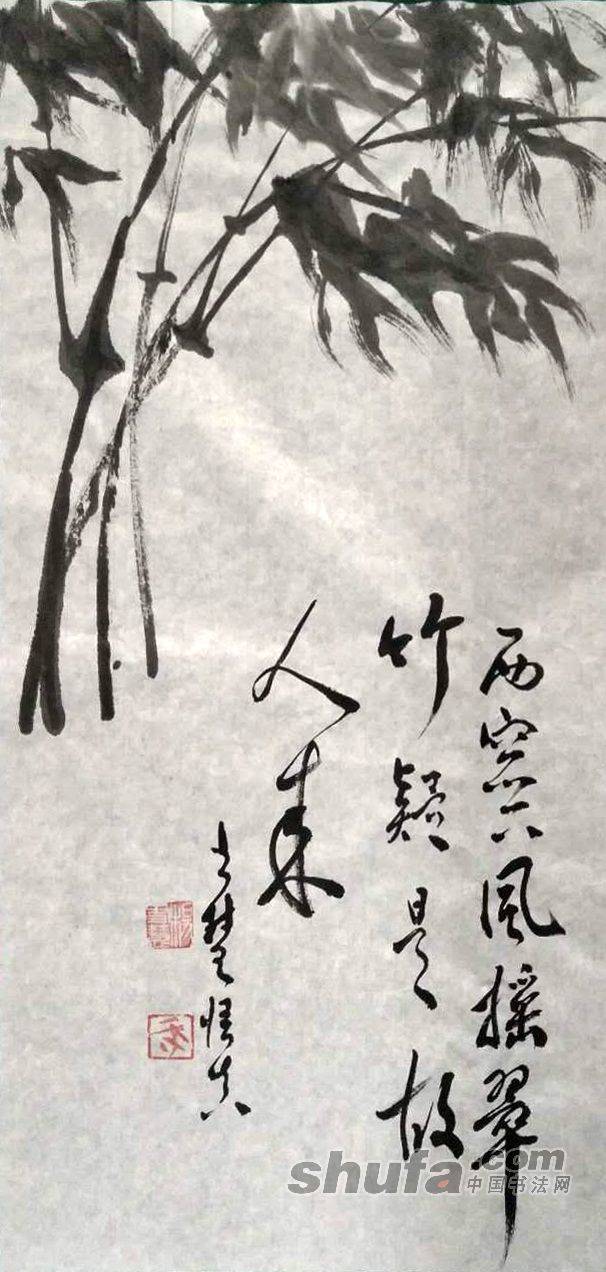 西窗下风摇翠
竹疑是故
人来
楚悟真
shufa.com
中国书法网